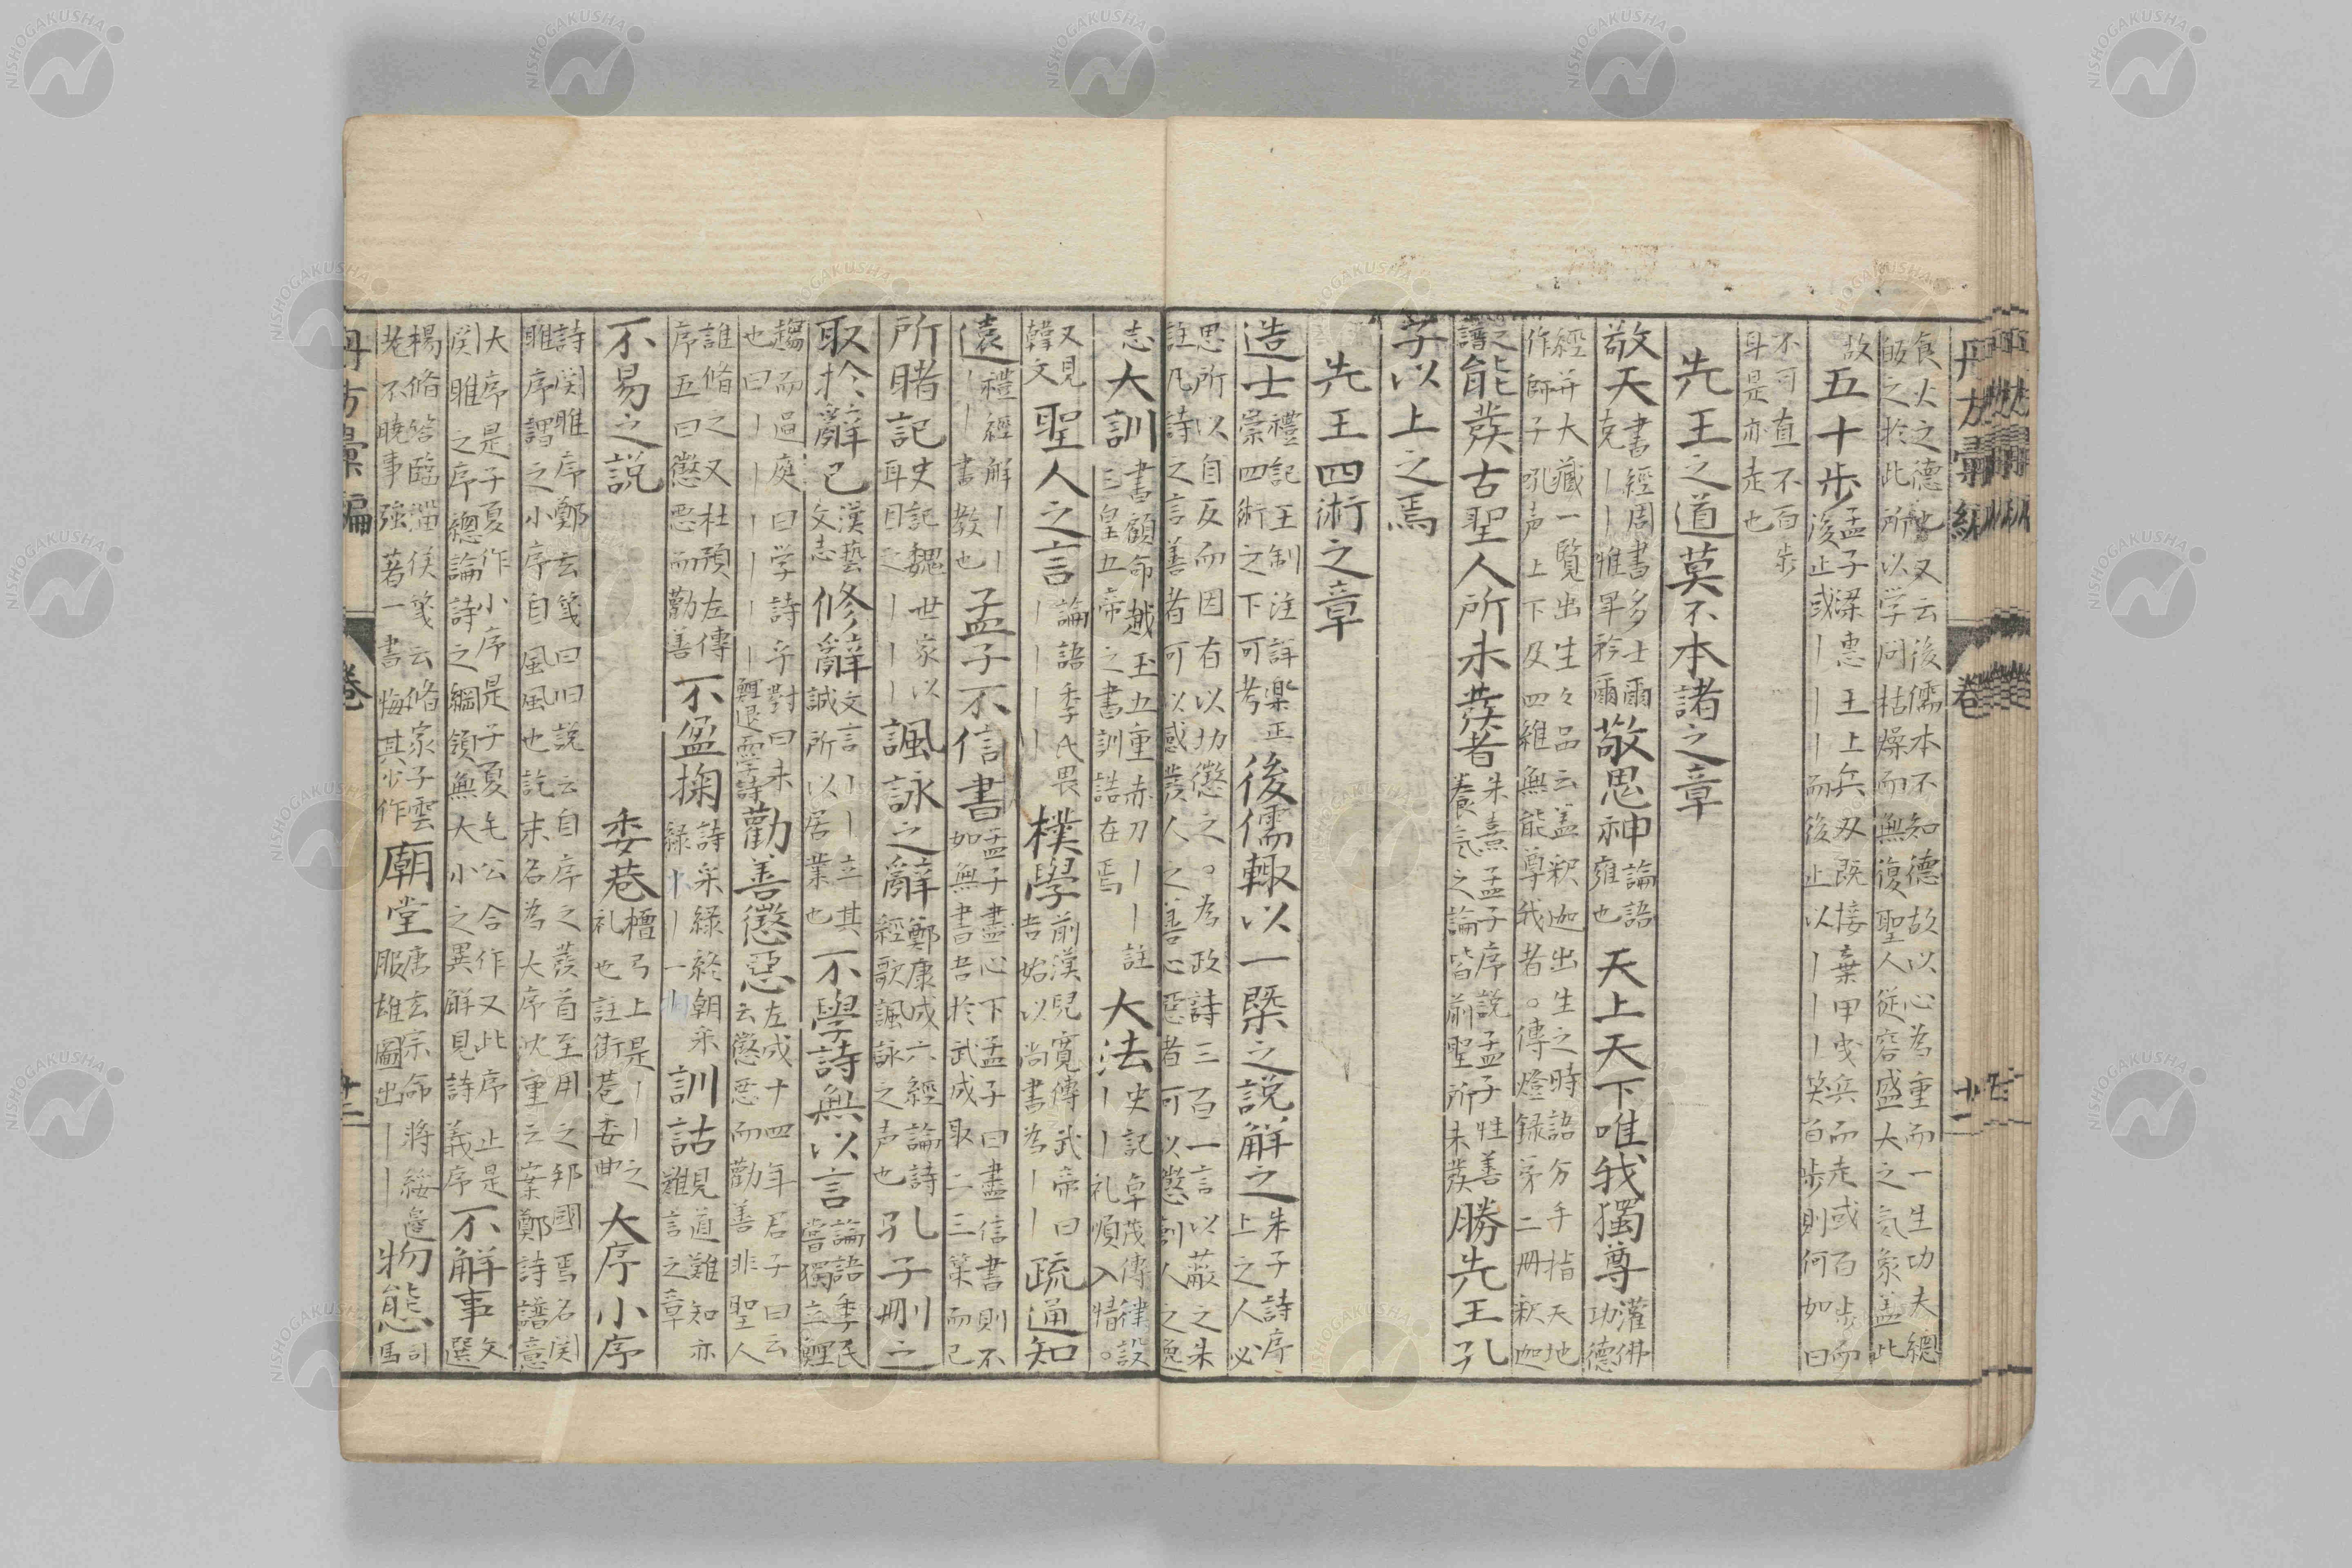 食火之德也又云後儒本不知德故以心為重而一生功夫總
皈之於此所以学問枯燥而無復聖人從容盛大之氣象蓋此
故五十歩孟子梁惠王上兵刃既接棄甲曳兵而走或百歩而
後止或〡〡〡而後止以〡〡〡笑百歩則何如曰
不可直不百歩
耳是亦走也
先王之道莫不本諸之章
敬天書經周書多士爾克〡〡惟畀矜爾敬思神論語雍也天上天下唯我獨尊灌佛功德
經并大藏一覧出生々品云蓋釈迦出生之時語分手指天地
作師子吼声上下及四維無能尊我者。傳燈録第二冊釈迦
之譜能發古聖人所未發者朱熹孟子序説孟子性善養氣之論皆前聖所未發勝先王孔
子以上之焉
先王四術之章
造士禮記王制注詳楽正崇四術之下可考後儒輙以一槩之説解之朱子詩序上之人必
思所以自反而因有以功懲之。為政詩三百一言以蔽之朱
註凡詩之言善者可以感發人之善心惡者可以懲創人之逸
志大訓書顧命越玉五重赤刀〡〡註三皇五帝之書訓誥在焉大法史記卓茂傳律設〡〡礼順人情。
又見韓文聖人之言論語季氏畏〡〡〡〡樸學前漢兒寛傳武帝曰吾始以尚書為〡〡疏通知
遠禮經解〡〡〡〡書教也孟子不信書孟子盡心下孟子曰盡信書則不如無書吾於武成取二三策而已
所睹記史記魏世家以耳目之〡〡〡諷詠之辭鄭康成六經論詩經歌諷詠之声也孔子刪之
取於辭已漢藝文志修辭文言〡〡立其誠所以居業也不學詩無以言論語季氏嘗獨立鯉
趨而過庭曰学詩乎對曰未也曰〡〡〡〡〡鯉退而学詩勸善懲惡左成十四年君子曰云云懲悪而勸善非聖人
誰脩之又杜預左傳序五曰懲悪而勸善不盈掬詩采緑終朝采緑〡〡一〡訓詁見道難知亦難言之章
不易之説　委巷檀弓上是〡〡之礼也註街巷委曲大序小序
詩関雎序鄭玄箋曰旧説云自序之發首至用之邦國焉名関
雎序謂之小序自風風也訖末名為大序沈重云案鄭詩譜意
大序是子夏作小序是子夏毛公合作又此序止是
関雎之序總論詩之綱領無大小之異解見詩義序不解事文選
楊脩答臨淄侯箋云脩家子雲老不曉事強著一書悔其少作廟堂唐玄宗命将綏邊服雄圖出〡〡物態司馬
丹方彙編　巻　十一
丹方彙編　巻　十二